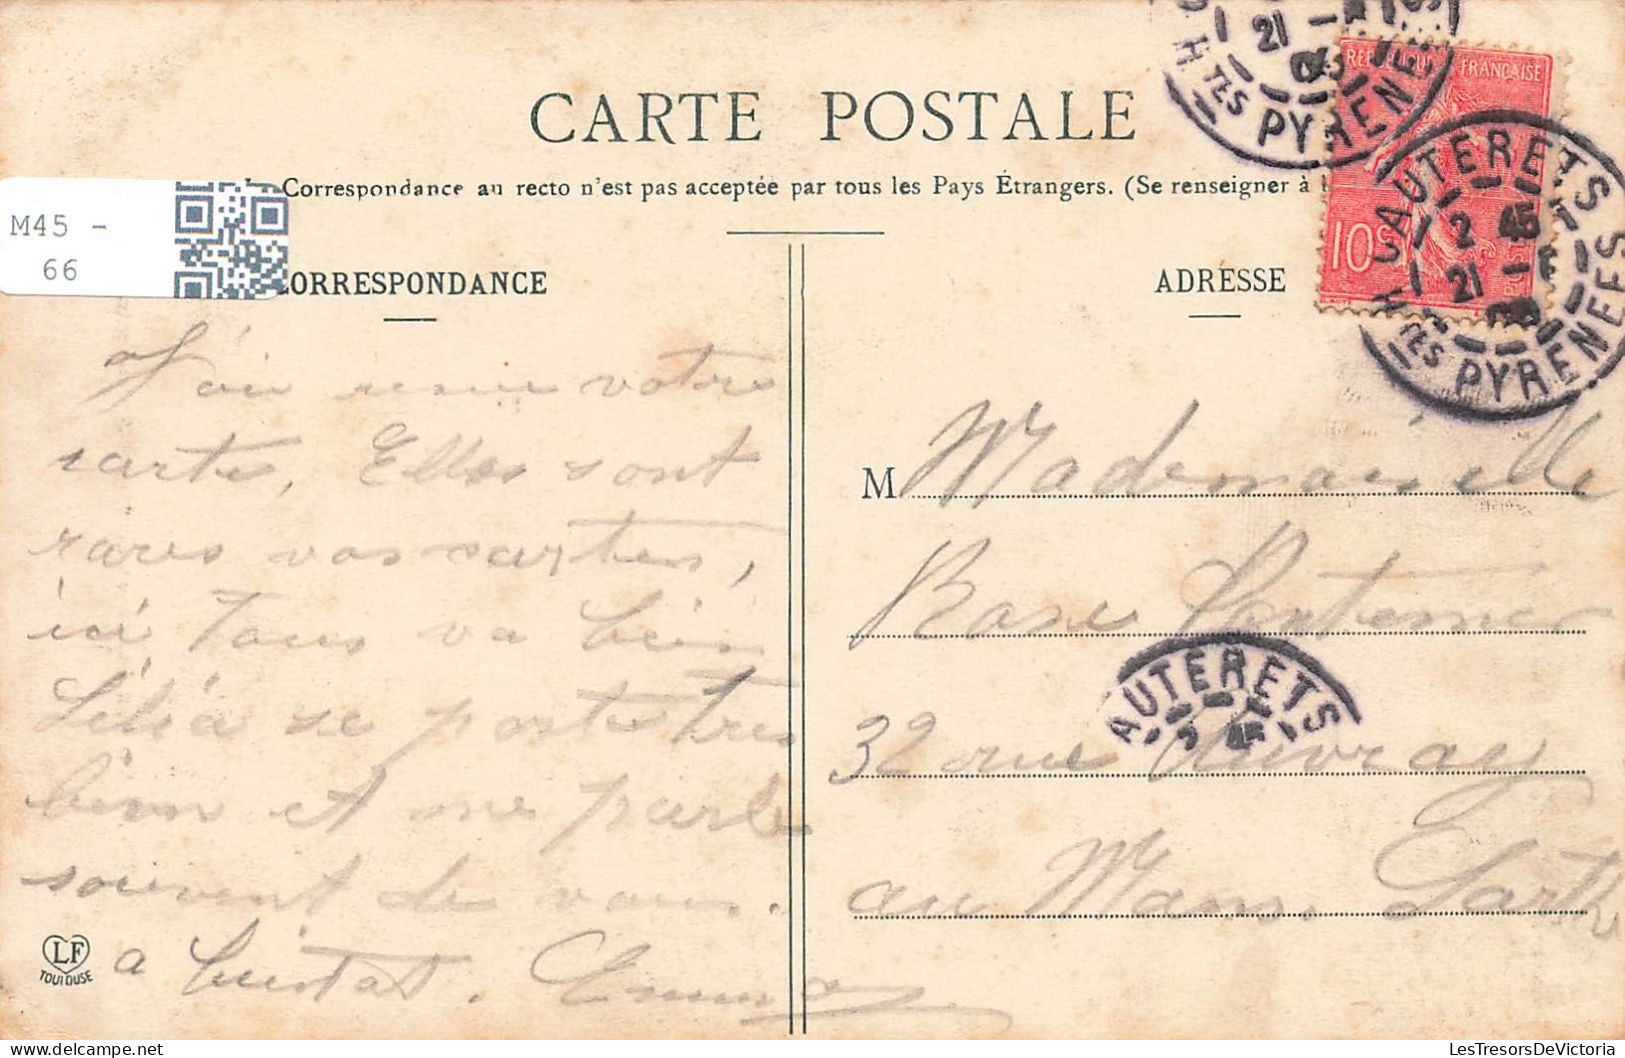 CARTE POSTALE
Correspondance au recto n'est pas acceptée par tous les Pays Étrangers. (Se renseigner à
M45 -
66
CORRESPONDANCE
ADRESSE
J'ai recu votre
carte, Elles sont
rares vos cartes,
ici Tous va bien
Lélia se porte tres
bien et me parle
souvent de vous.
a bientot. Emma
LF
TOULOUSE
REPUBLIQUE FRANCAISE
10c
21
HTES PYRENEES
CAUTERETS
2 45
21
HTES PYRENEES
M Mademoiselle
Rose
AUTERETS
2 45
32 rue Auvray
au Mans. Sarthe
LesTresorsDeVictoria